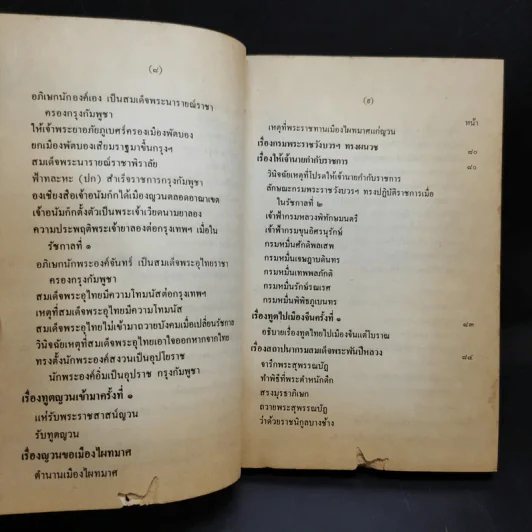 (๘)
อภิเษกนักองค์เอง เป็นสมเด็จพระนารายณ์ราชา
ครองกรุงกัมพูชา
ให้เจ้าพระยาอภัยภูเบศร์ครองเมืองพัตบอง
ยกเมืองพัตบองเสียมราฐมาขึ้นกรุงฯ
สมเด็จพระนารายณ์ราชาพิราลัย
ฟ้าทะละหะ (ปก) สำเร็จราชการกรุงกัมพูชา
องเชียงสือเจ้าอนัมก๊กได้เมืองญวนตลอดอาณาเขต
เจ้าอนัมก๊กตั้งตัวเป็นพระเจ้าเวียดนามยาลอง
ความประพฤติพระเจ้ายาลองต่อกรุงเทพฯ เมื่อใน
รัชกาลที่ ๑
อภิเษกนักพระองค์จันทร์ เป็นสมเด็จพระอุไทยราชา
ครองกรุงกัมพูชา
สมเด็จพระอุไทยมีความโทมนัสต่อกรุงเทพฯ
เหตุที่สมเด็จพระอุไทยมีความโทมนัส
สมเด็จพระอุไทยไม่เข้ามาถวายบังคมเมื่อเปลี่ยนรัชกาล
วินิจฉัยเหตุที่สมเด็จพระอุไทยเอาใจออกหากจากไทย
ทรงตั้งนักพระองค์สงวนเป็นอุปโยราช
นักพระองค์อิ่มเป็นอุปราช กรุงกัมพูชา
เรื่องทูตญวนเข้ามาครั้งที่ ๑
แห่รับพระราชสาสน์ญวน
รับทูตญวน
เรื่องญวนขอเมืองไผทมาศ
ตำนานเมืองไผทมาศ
(๙)
หน้า
เหตุที่พระราชทานเมืองไผทมาศแก่ญวน
เรื่องกรมพระราชวังบวรฯ ทรงผนวช ๘๐
เรื่องให้เจ้านายกำกับราชการ ๘๐
วินิจฉัยเหตุที่โปรดให้เจ้านายกำกับราชการ
ลักษณะกรมพระราชวังบวรฯ ทรงปฏิบัติราชการเมื่อ
ในรัชกาลที่ ๒
เจ้าฟ้ากรมหลวงพิทักษมนตรี
เจ้าฟ้ากรมขุนอิศรานุรักษ์
กรมหมื่นศักดิพลเสพ
กรมหมื่นเจษฎาบดินทร
กรมหมื่นเทพพลภักดิ
กรมหมื่นรักษ์รณเรศ
กรมหมื่นพิพิธภูเบนทร
เรื่องทูตไปเมืองจีนครั้งที่ ๑ ๘๓
อธิบายเรื่องทูตไทยไปเมืองจีนแต่โบราณ
เรื่องสถาปนากรมสมเด็จพระพันปีหลวง ๘๔
จารึกพระสุพรรณบัฏ
ทำพิธีที่พระตำหนักตึก
สรงมุรธาภิเษก
ถวายพระสุพรรณบัฏ
ว่าด้วยราชนิกูลบางช้าง